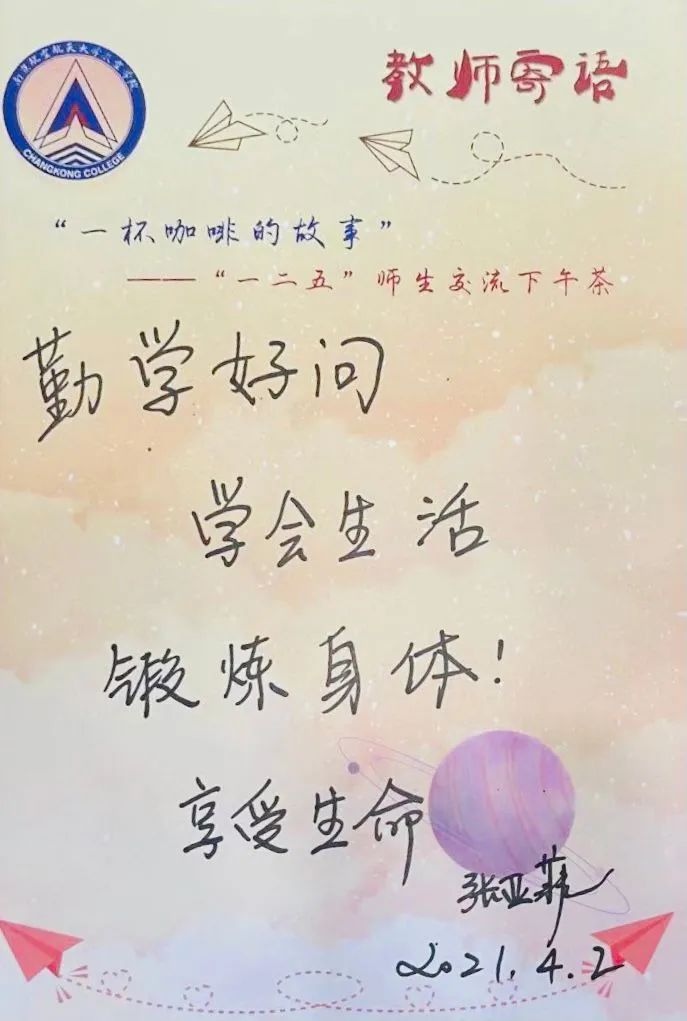 南京航空航天大学长空学院
CHANGKONG COLLEGE
教师寄语
“一杯咖啡的故事”
——“一二五”师生交流下午茶
勤学好问
学会生活
锻炼身体！
享受生命
张亚菲
2021.4.2